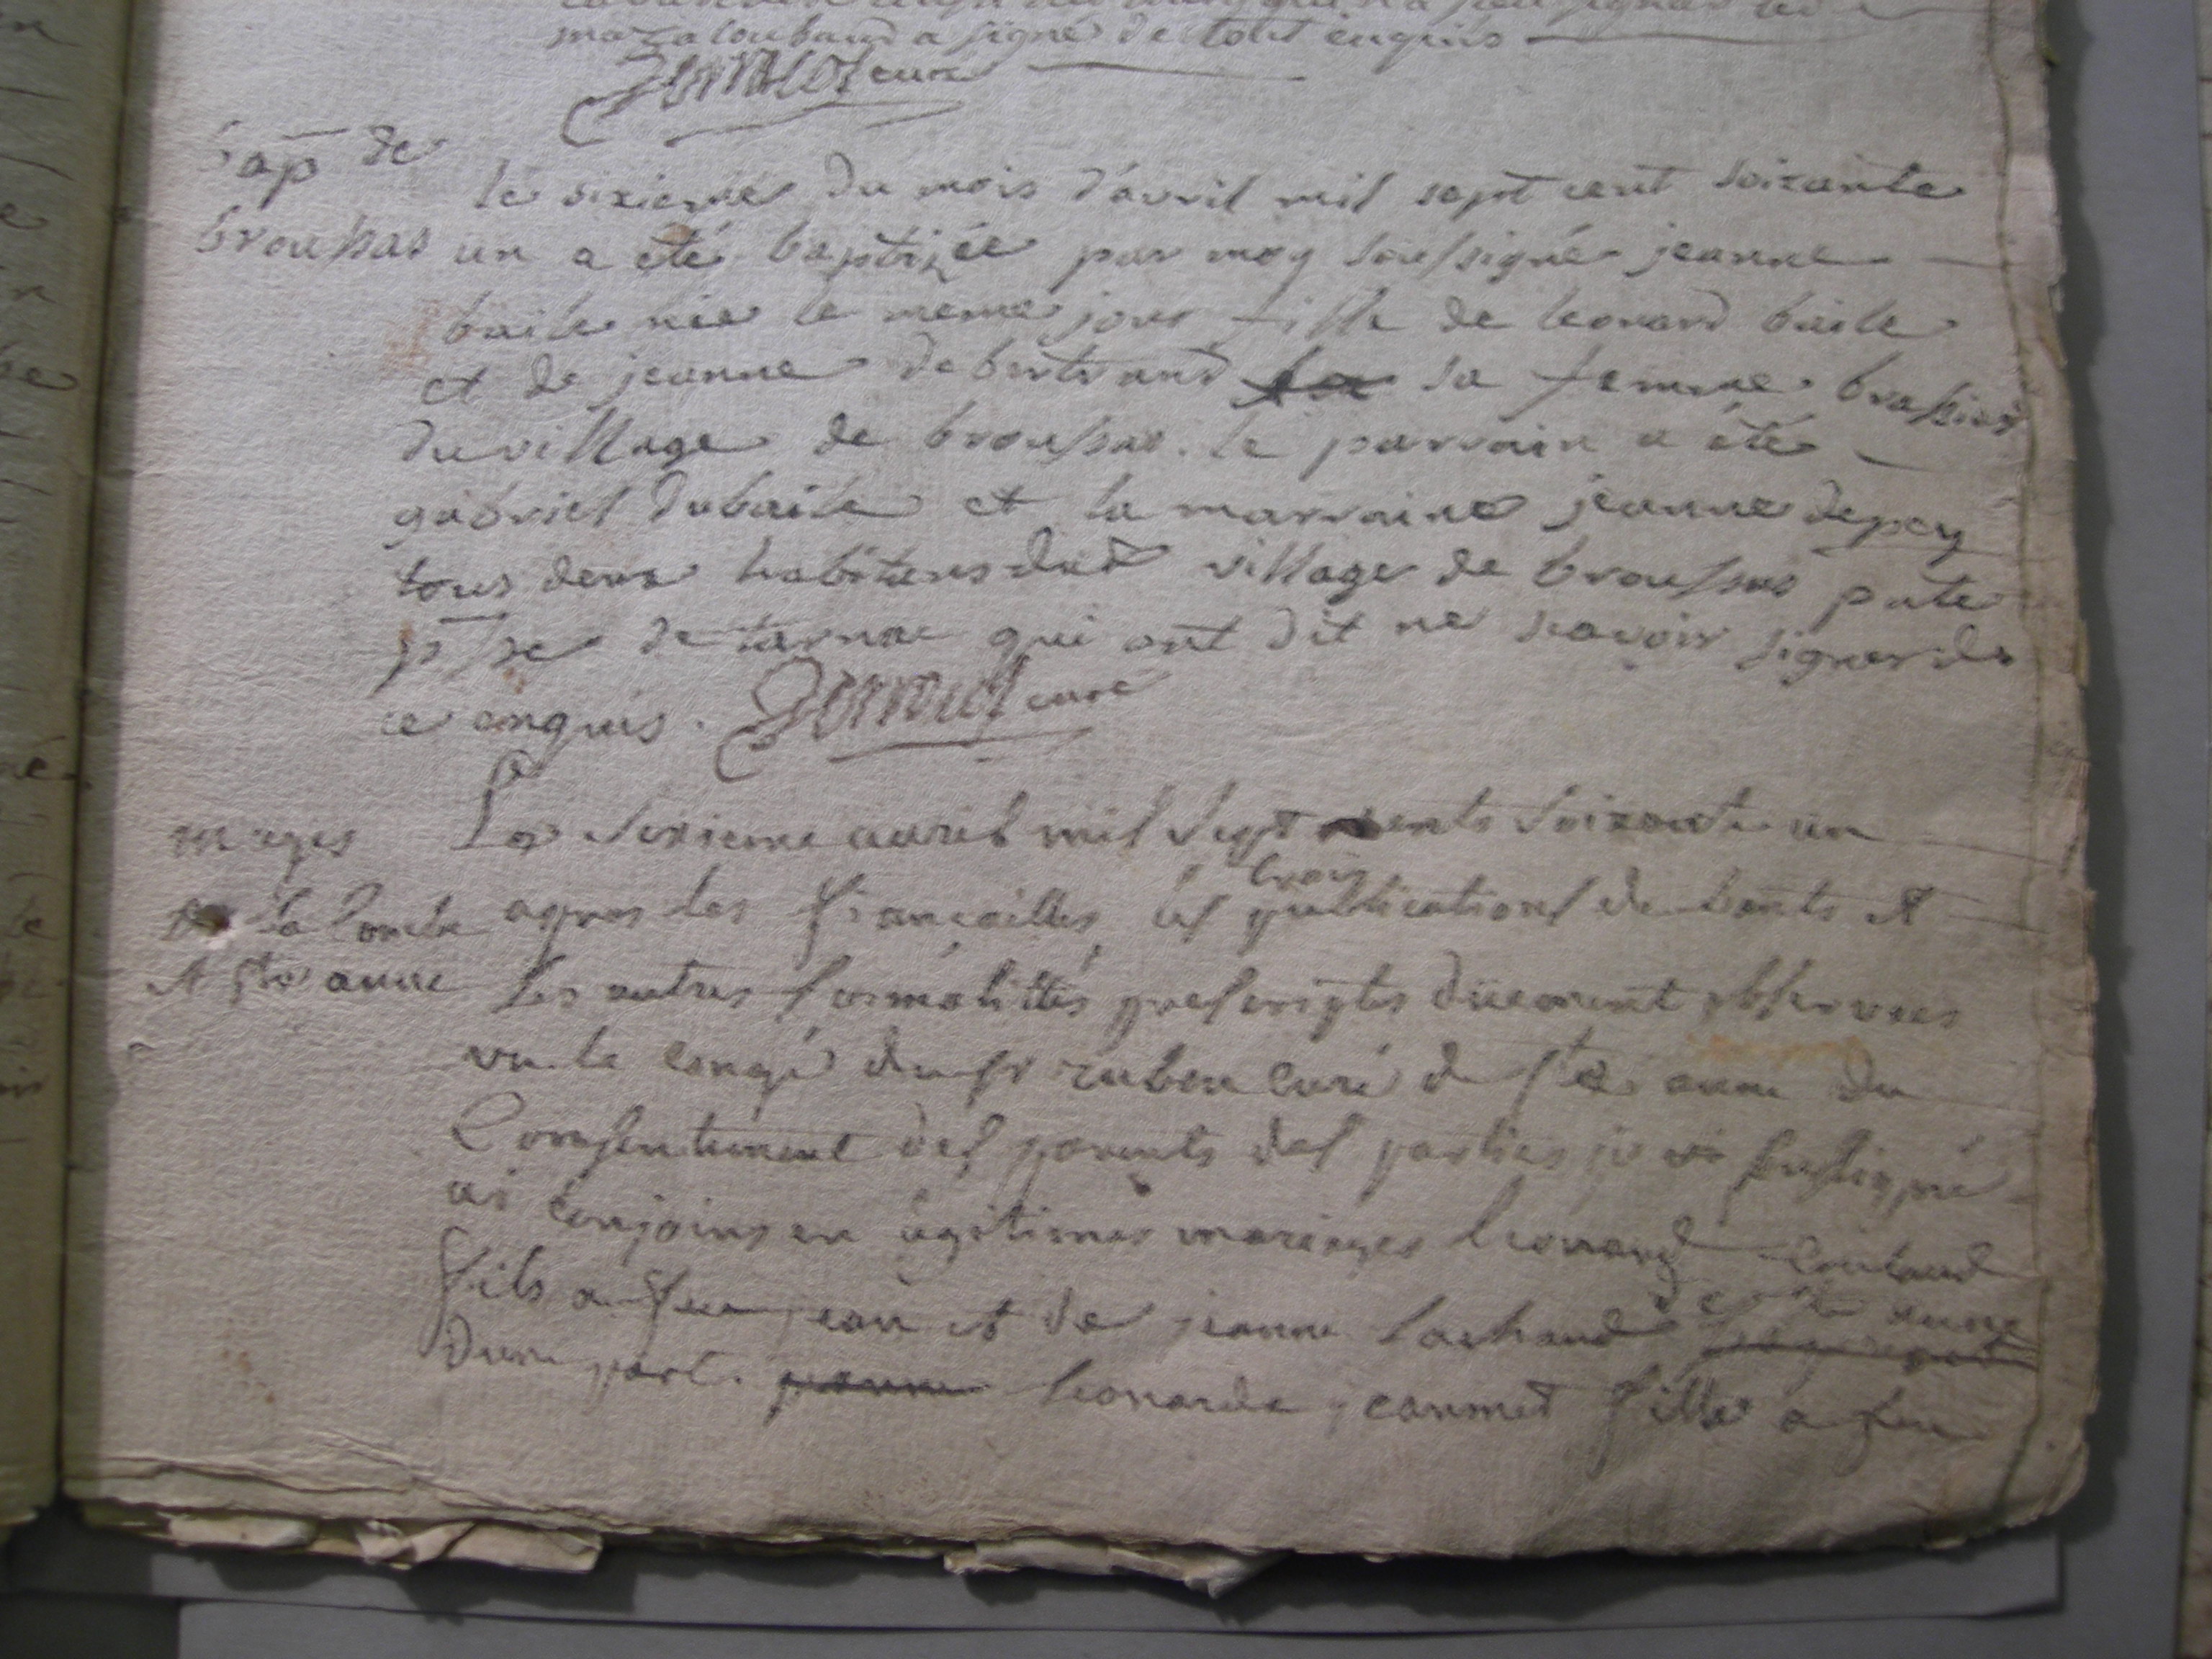 mazaloubaud a signé de tout enquis
curé
bap de
broussas
le sixieme du mois d'avril mil sept cent soixante
un a eté baptizée par moy soussigné jeanne
baile née le meme jour fille de leonard baile
et de jeanne debertrand sa femme brassier
du village de broussas. le parrain a été
gabriel dubaile et la marraine jeanne depey
tous deux habitans dud village de broussas pnte
p̄sse de tarnac qui ont dit ne scavoir signer de
ce enquis. curé
mages
la Combe
et ste anne
Le sexieme avril mil sept cents soixante un
apres les fiancailles, les trois publications de bants et
les autres formalittés prescriptes düement observées
vu le congé du sr curé de ste anne du
Consentement des parents des parties je soussigné
ai conjoins en légitimes mariages leonard
fils a feu jean et de jeanne lachaud de ste anne
dune part. jeanne leonarde jeanmet fille a feu